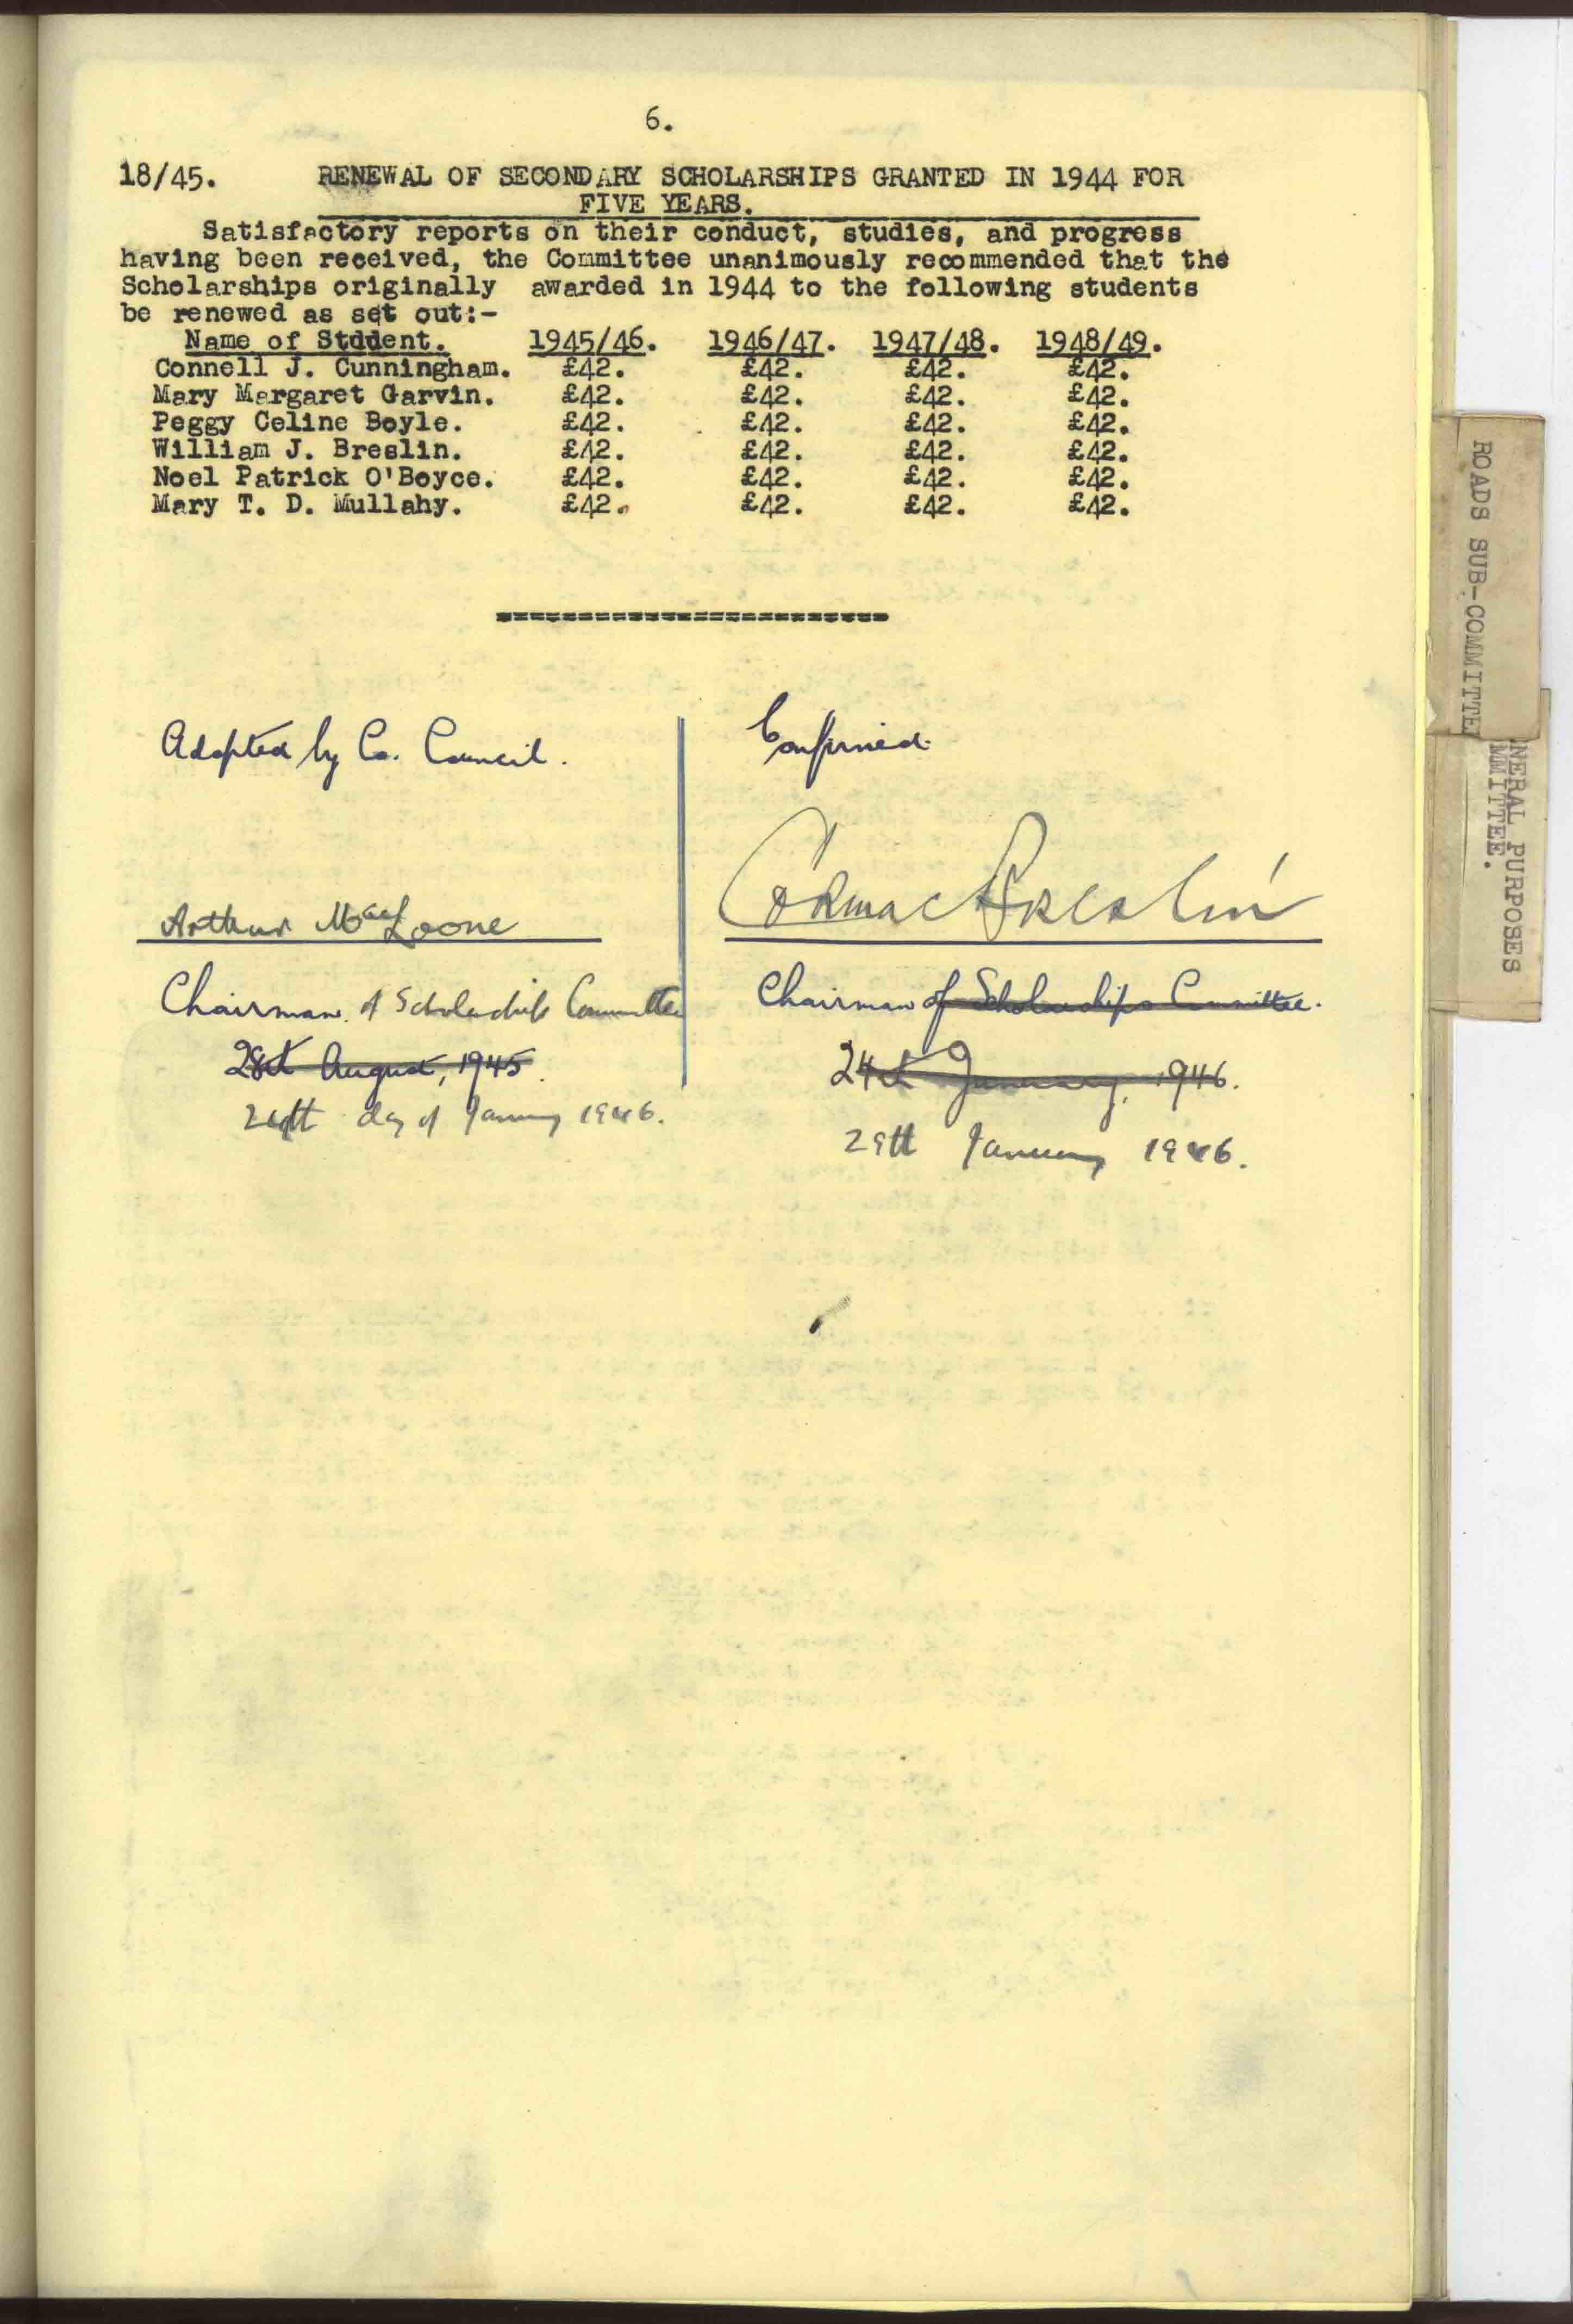 6.
18/45. RENEWAL OF SECONDARY SCHOLARSHIPS GRANTED IN 1944 FOR
FIVE YEARS.
Satisfactory reports on their conduct, studies, and progress
having been received, the Committee unanimously recommended that the
Scholarships originally awarded in 1944 to the following students
be renewed as set out:-
Name of Stddent. 1945/46. 1946/47. 1947/48. 1948/49.
Connell J. Cunningham. £42. £42. £42. £42.
Mary Margaret Garvin. £42. £42. £42. £42.
Peggy Celine Boyle. £42. £42. £42. £42.
William J. Breslin. £42. £42. £42. £42.
Noel Patrick O'Boyce. £42. £42. £42. £42.
Mary T. D. Mullahy. £42. £42. £42. £42.
========================
Adopted by Co. Council.
Arthur MacLoone
Chairman of Scholarship Committee
28th August, 1945.
day of January 1946.
Confirmed.
Cormac Breslin
Chairman of Scholarships Committee.
24th January, 1946.
29th January 1946.
ROADS SUB-COMMITTEE
NERAL PURPOSES
MMITTEE.